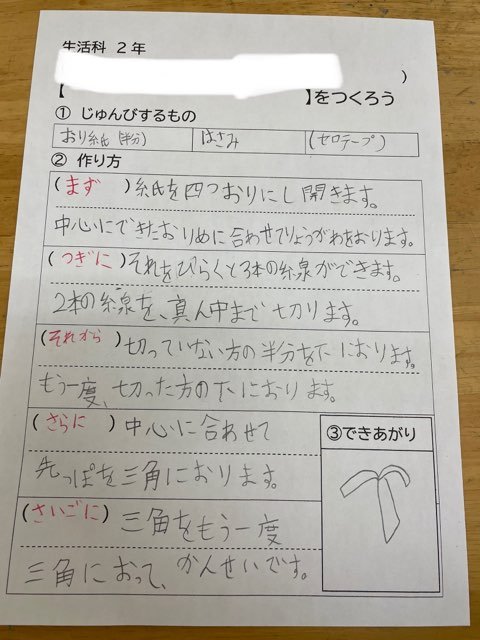 生活科 2年
)
【 】をつくろう
① じゅんびするもの
おり紙(半分) はさみ (セロテープ)
② 作り方
(まず )紙を四つおりにし開きます。
中心にできたおりめに合わせてりょうがわをおります。
(つぎに )それをひらくと3本の線ができます。
2本の線を、真ん中まで切ります。
(それから )切っていない方の半分を下におります。
もう一度、切った方の下におります。
(さらに )中心に合わせて
先っぽを三角におります。
(さいごに)三角をもう一度
三角におって、かんせいです。
③できあがり